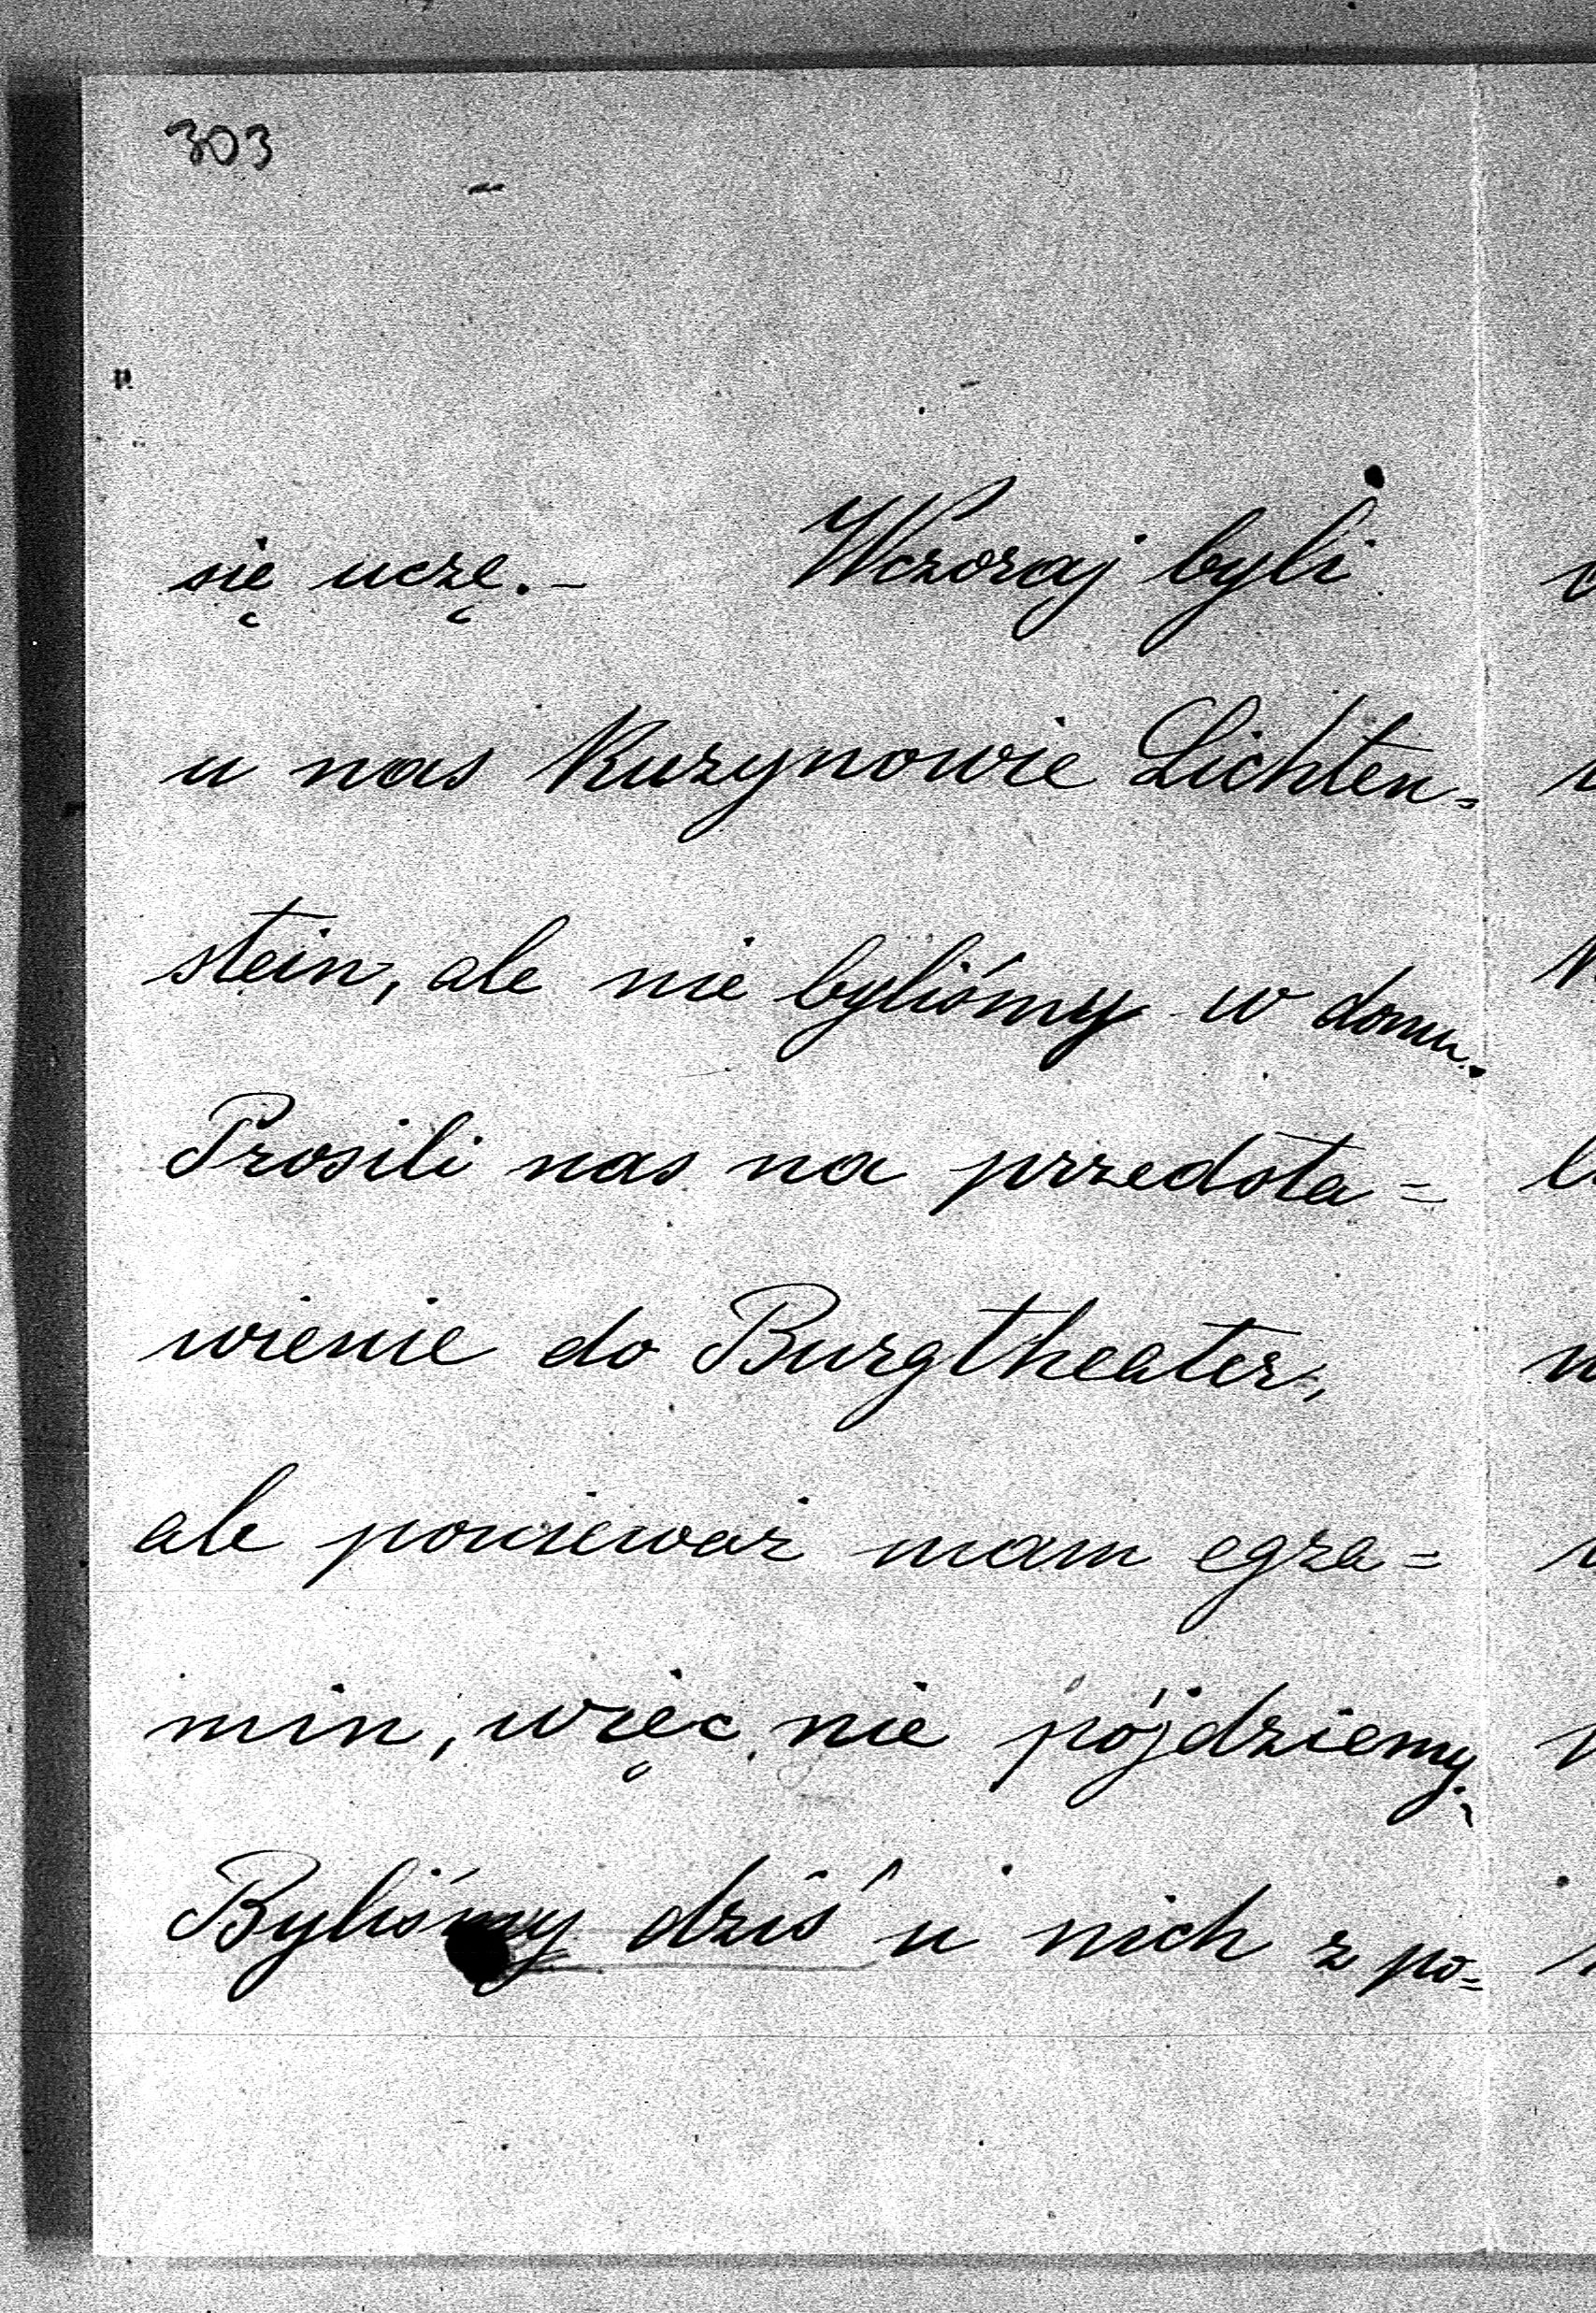 303
się uczę. – Wczoraj byli
u nas Kuzynowie Lichten=
stein, ale nie byliśmy w domu.
Prosili nas na przedsta=
wienie do Burgtheater,
ale ponieważ mam egza=
min, więc nie pójdziemy.
Byliśmy dziś u nich z po=